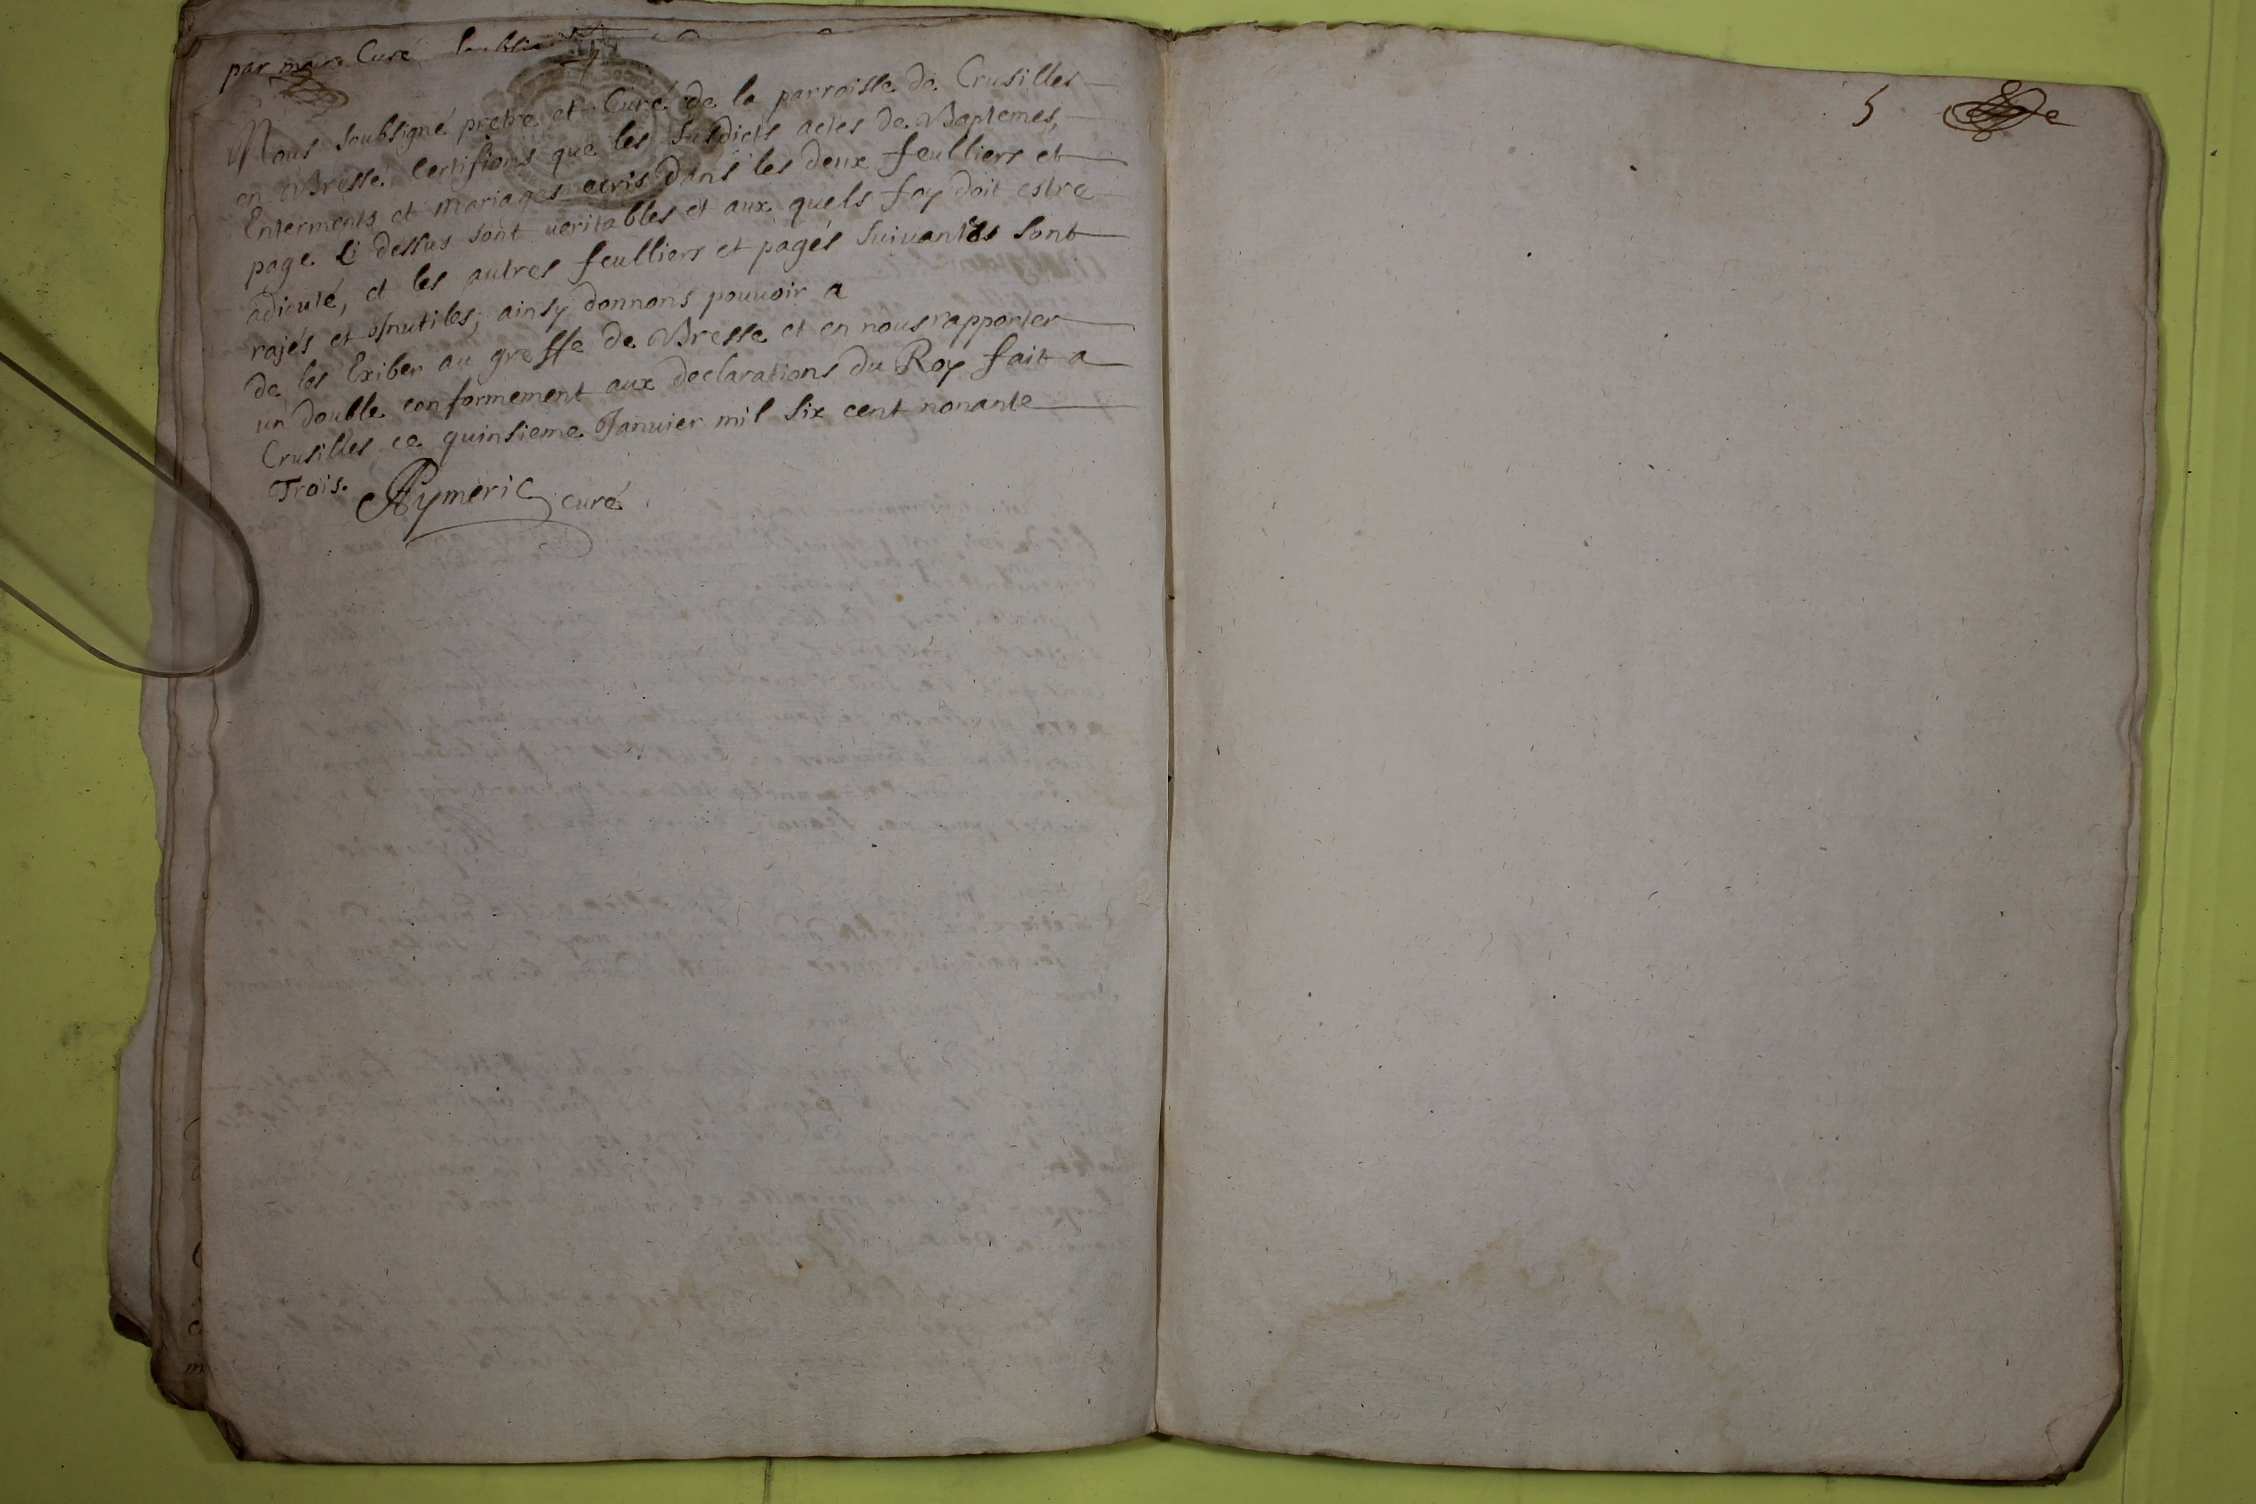 par moire Curé
Nous soubsigné pretre et Curé de la parroisse de Crusilles
en Bresse Certifions que les susdicts actes de Baptemes,
Enterments et mariages ecris dans les deux feulliers et
page Ci dessus sont veritables et aux quels foy doit estre
adiouté, et les autres feulliers et pages suivantes sont
rajés et Inutiles; ainsy donnons pouvoir a
de les Exiber au greffe de Bresse et en nous rapporter
un double conformement aux declarations du Roy fait a
Crusilles ce quinsieme Janvier mil six cent nonante
Trois. Aymeric curé
5